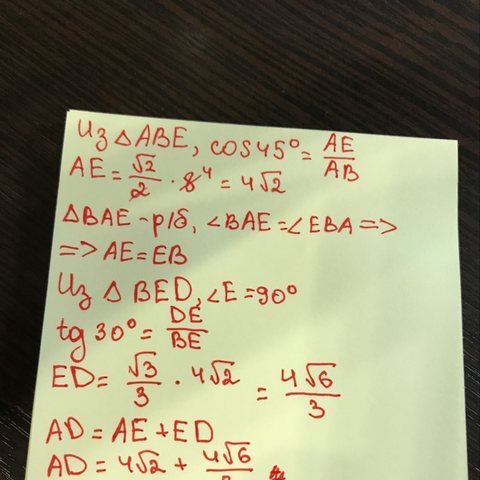 Из △ABE, cos45°= AE/AB
AE= √2/2 · 8⁴ = 4√2
△BAE - р/б, ∠BAE=∠EBA =>
=> AE=EB
Из △ BED, ∠E=90°
tg 30°= DE/BE
ED= √3/3 · 4√2 = 4√6/3
AD = AE+ED
AD = 4√2 + 4√6/3